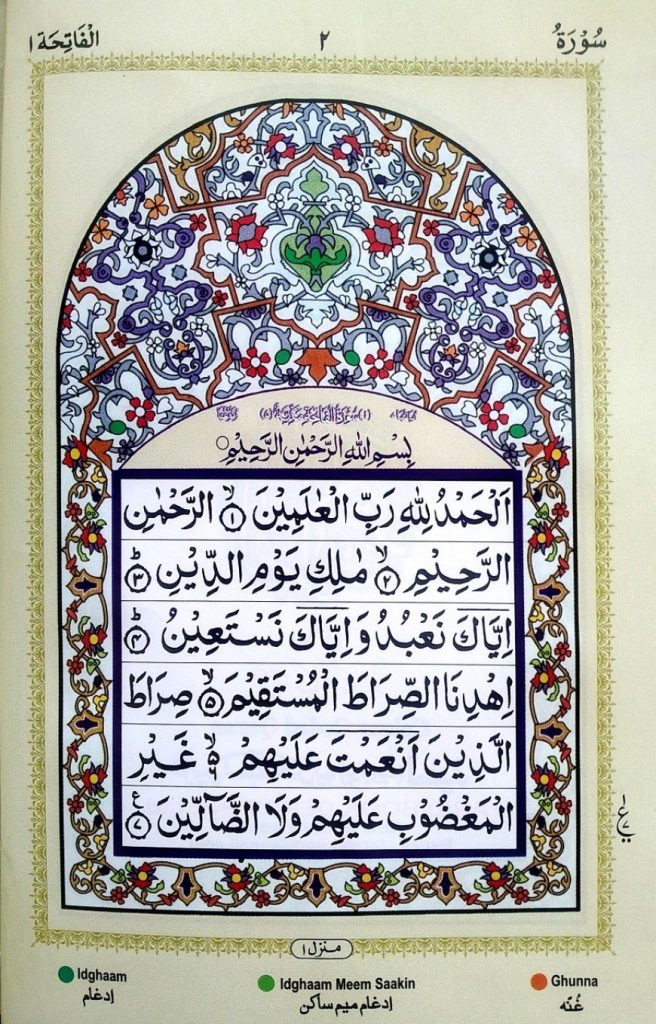 سُوْرَةُ ٢ الْفَاتِحَة ١
بِسْمِ اللّٰهِ الرَّحْمٰنِ الرَّحِيْمِ
اَلْحَمْدُ لِلّٰهِ رَبِّ الْعٰلَمِيْنَ ۙ﴿١﴾ الرَّحْمٰنِ
الرَّحِيْمِ ۙ﴿٢﴾ مٰلِكِ يَوْمِ الدِّيْنِ ؕ﴿٣﴾
اِيَّاكَ نَعْبُدُ وَ اِيَّاكَ نَسْتَعِيْنُ ؕ﴿۴﴾
اِهْدِنَا الصِّرَاطَ الْمُسْتَقِيْمَ ۙ﴿۵﴾ صِرَاطَ
الَّذِيْنَ اَنْعَمْتَ عَلَيْهِمْ ۙ۬ۦ غَيْرِ
الْمَغْضُوْبِ عَلَيْهِمْ وَلَا الضَّآلِّيْنَ ﴿٧﴾
منزل ١
Idghaam Idghaam Meem Saakin Ghunna
إدغام إدغام ميم ساكن غُنّه